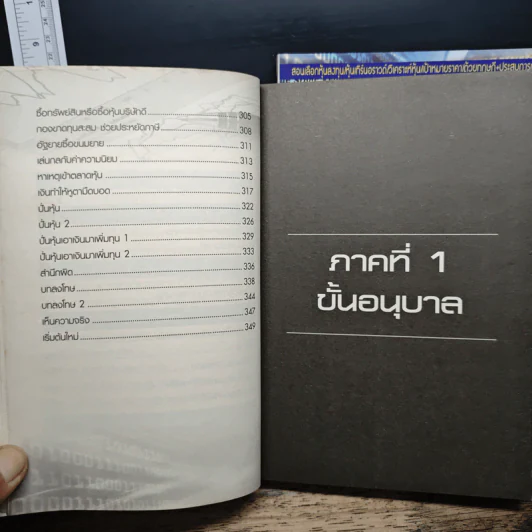 สอนเลือกหุ้นลงทุน หุ้นเทิร์นอราวด์ วิเคราะห์หุ้น เป้าหมายราคาด้วยทฤษฎี-ประสบการ
ซื้อทรัพย์สินหรือซื้อหุ้นบริษัทดี 305
กองขาดทุนสะสม ช่วยประหยัดภาษี 308
อัฐยายซื้อขนมยาย 311
เล่นกลกับค่าความนิยม 313
หาเหตุเข้าตลาดหุ้น 315
เงินทำให้หูตามืดบอด 317
ปั่นหุ้น 322
ปั่นหุ้น 2 326
ปั่นหุ้นเอาเงินมาเพิ่มทุน 1 329
ปั่นหุ้นเอาเงินมาเพิ่มทุน 2 333
สำนึกผิด 336
บทลงโทษ 338
บทลงโทษ 2 344
เห็นความจริง 347
เริ่มต้นใหม่ 349
ภาคที่ 1
ขั้นอนุบาล